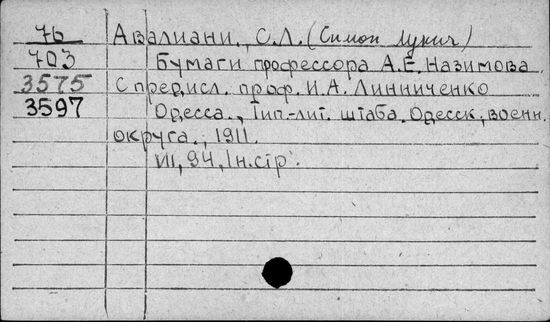 76 Авалиани., С.Л. (Симон Лукич)
703 Бумаги профессора А.Е. Назимова.
3575 С предисл. проф. И.А. Линниченко
3597 Одесса., тип.-лит. штаба. Одесск. военн.
округа., 1911.
VII, 94, 1н.стр.